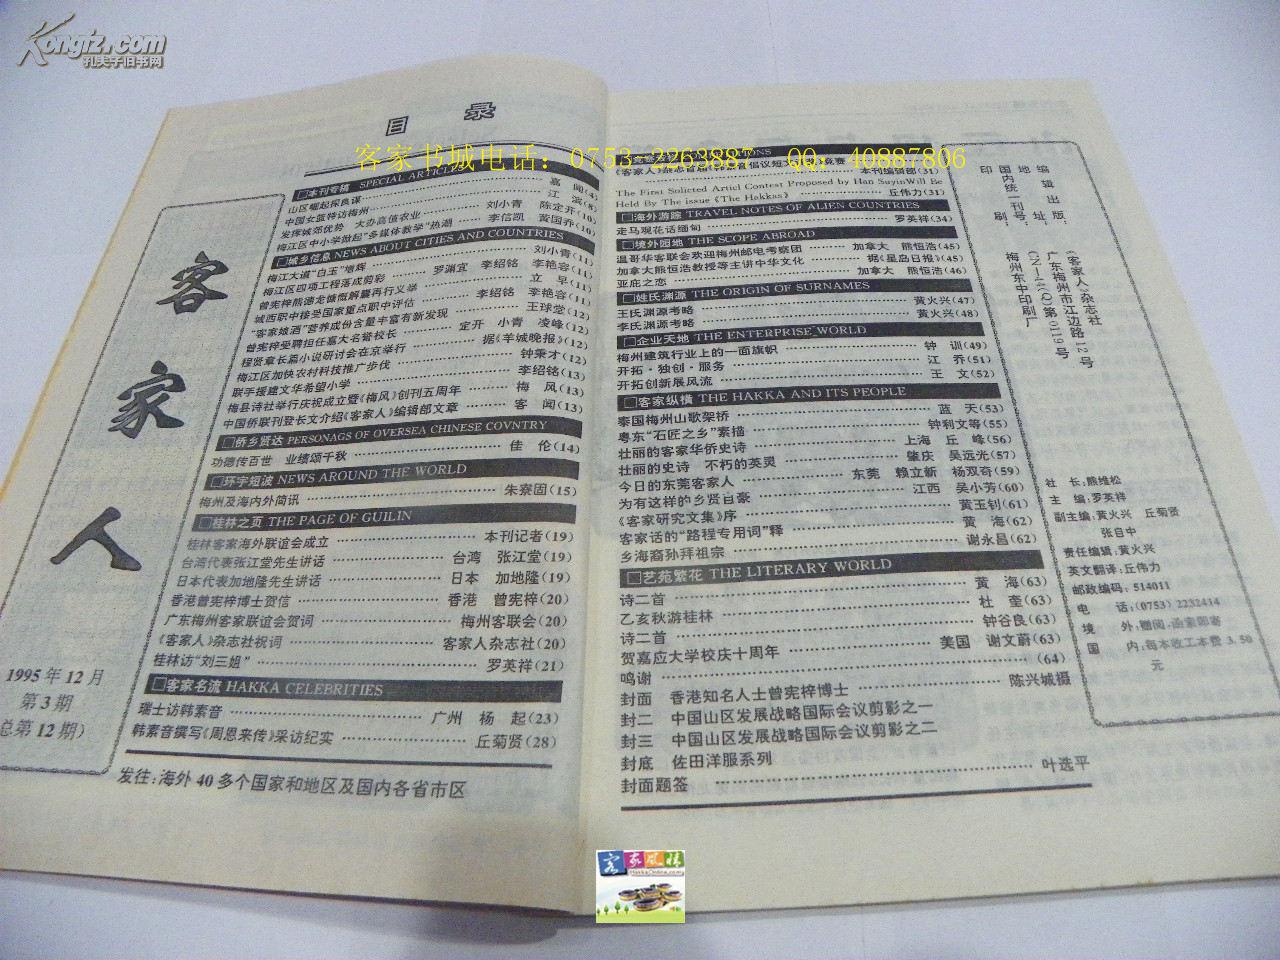 Kongfz.com
孔夫子旧书网
目 录
客家书城电话：0753-2263887 QQ：40887806
客家人
1995年12月
第3期
总第12期）
□本刊专稿 SPECIAL ARTICLE
山区崛起探良谋 嘉 闻(4)
中国女篮特访梅州 江 滨(8)
发挥城郊优势 大办高值农业 刘小青 陈定开(10)
梅江区中小学掀起“多媒体教学”热潮 李信凯 黄国乔(10)
□城乡信息 NEWS ABOUT CITIES AND COUNTRIES
梅江大道“白玉”增辉 刘小青(11)
梅江区四项工程落成剪彩 罗渊宜 李绍铭 李艳容(11)
曾宪梓熊德龙慷慨解囊再行义举 立 早(11)
城西职中接受国家重点职中评估 李绍铭 李艳容(11)
“客家娘酒”营养成份含量丰富有新发现 王球堂(12)
曾宪梓受聘担任嘉大名誉校长 定开 小青 凌峰(12)
程贤章长篇小说研讨会在京举行 据《羊城晚报》(12)
梅江区加快农村科技推广步伐 钟秉才(12)
联手援建文华希望小学 李绍铭(13)
梅县诗社举行庆祝成立暨《梅风》创刊五周年 梅 风(13)
中国侨联刊登长文介绍《客家人》编辑部文章 客 闻(13)
□侨乡贤达 PERSONAGS OF OVERSEA CHINESE COVNTRY
功德传百世 业绩颂千秋 佳 伦(14)
□环宇短波 NEWS AROUND THE WORLD
梅州及海内外简讯 朱寮固(15)
□桂林之页 THE PAGE OF GUILIN
桂林客家海外联谊会成立 本刊记者(19)
台湾代表张江堂先生讲话 台湾 张江堂(19)
日本代表加地隆先生讲话 日本 加地隆(19)
香港曾宪梓博士贺信 香港 曾宪梓(20)
广东梅州客家联谊会贺词 梅州客联会(20)
《客家人》杂志社祝词 客家人杂志社(20)
桂林访“刘三姐” 罗英祥(21)
□客家名流 HAKKA CELEBRITIES
瑞士访韩素音 广州 杨 起(23)
韩素音撰写《周恩来传》采访纪实 丘菊贤(28)
发往：海外40多个国家和地区及国内各省市区
《客家人》杂志首届韩素音倡议短文 竞赛 本刊编辑部(31)
The First Solicted Articl Contest Proposed by Han SuyinWill Be
Held By The issue《The Hakkas》 丘伟力(31)
□海外游踪 TRAVEL NOTES OF ALIEN COUNTRIES
走马观花话缅甸 罗英祥(34)
□境外园地 THE SCOPE ABROAD
温哥华客联会欢迎梅州邮电考察团 加拿大 熊恒浩(45)
加拿大熊恒浩教授等主讲中华文化 据《星岛日报》(45)
亚庇之恋 加拿大 熊恒浩(46)
□姓氏渊源 THE ORIGIN OF SURNAMES
王氏渊源考略 黄火兴(47)
李氏渊源考略 黄火兴(48)
□企业天地 THE ENTERPRISE WORLD
梅州建筑行业上的一面旗帜 钟 训(49)
开拓·独创·服务 江 乔(51)
开拓创新展风流 王 文(52)
□客家纵横 THE HAKKA AND ITS PEOPLE
泰国梅州山歌架桥 蓝 天(53)
粤东“石匠之乡”素描 钟利文等(55)
壮丽的客家华侨史诗 上海 丘 峰(56)
壮丽的史诗 不朽的英灵 肇庆 吴远光(57)
今日的东莞客家人 东莞 赖立新 杨双奇(59)
为有这样的乡贤自豪 江西 吴小芳(60)
《客家研究文集》序 黄玉钊(61)
客家话的“路程专用词”释 黄 海(62)
乡海裔孙拜祖宗 谢永昌(62)
□艺苑繁花 THE LITERARY WORLD
诗二首 黄 海(63)
乙亥秋游桂林 杜 奎(63)
诗二首 钟谷良(63)
贺嘉应大学校庆十周年 美国 谢文蔚(63)
鸣谢 (64)
封面 香港知名人士曾宪梓博士 陈兴城摄
封二 中国山区发展战略国际会议剪影之一
封三 中国山区发展战略国际会议剪影之二
封底 佐田洋服系列
封面题签 叶选平
编辑出版：《客家人》杂志社
地 址：广东梅州市江边路12号
国内统一刊号：第0119号
印 刷：梅州东中印刷厂
社 长：熊维松
主 编：罗英祥
副主编：黄火兴 丘菊贤
张自中
责任编辑：黄火兴
英文翻译：丘伟力
邮政编码：514011
电 话：(0753) 2232414
境 外：赠阅·函索即寄
国 内：每本收工本费3.50
元
客家风情
HakkaOnline.com